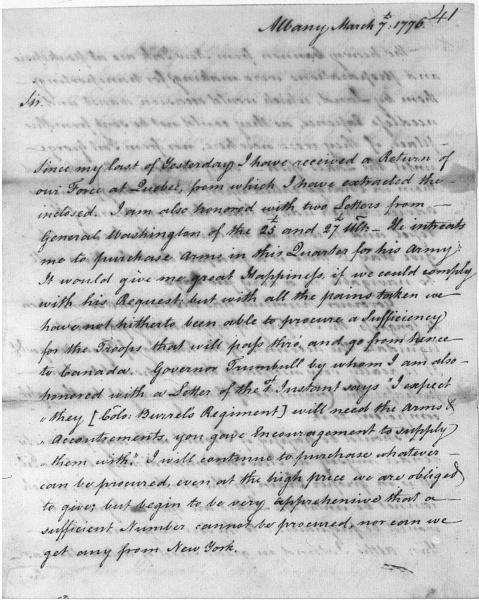 41
Albany March 7th. 1776.
Sir.
Since my last of Yesterday I have received a Return of
our Force at Quebec, from which I have extracted the
inclosed. I am also honored with two Letters from
General Washington of the 25th and 27th Ulto. He intreats
me to purchase Arms in this Quarter for his Army.
It would give me great Happiness if we could comply
with his Request; but with all the pains taken we
have not hitherto been able to procure a Sufficiency
for the Troops that will pass thro, and go from hence
to Canada. Governor Trumbull by whom I am also
honored with a Letter of the Instant says "I expect
"they [Colo: Burrel's Regiment] will need the Arms &
"Accoutrements, you gave Encouragement to supply
them with." I will continue to purchase whatever
can be procured, even at the high price we are obliged
to give; but begin to be very apprehensive that a
sufficient Number cannot be procured, nor can we
get any from New York.